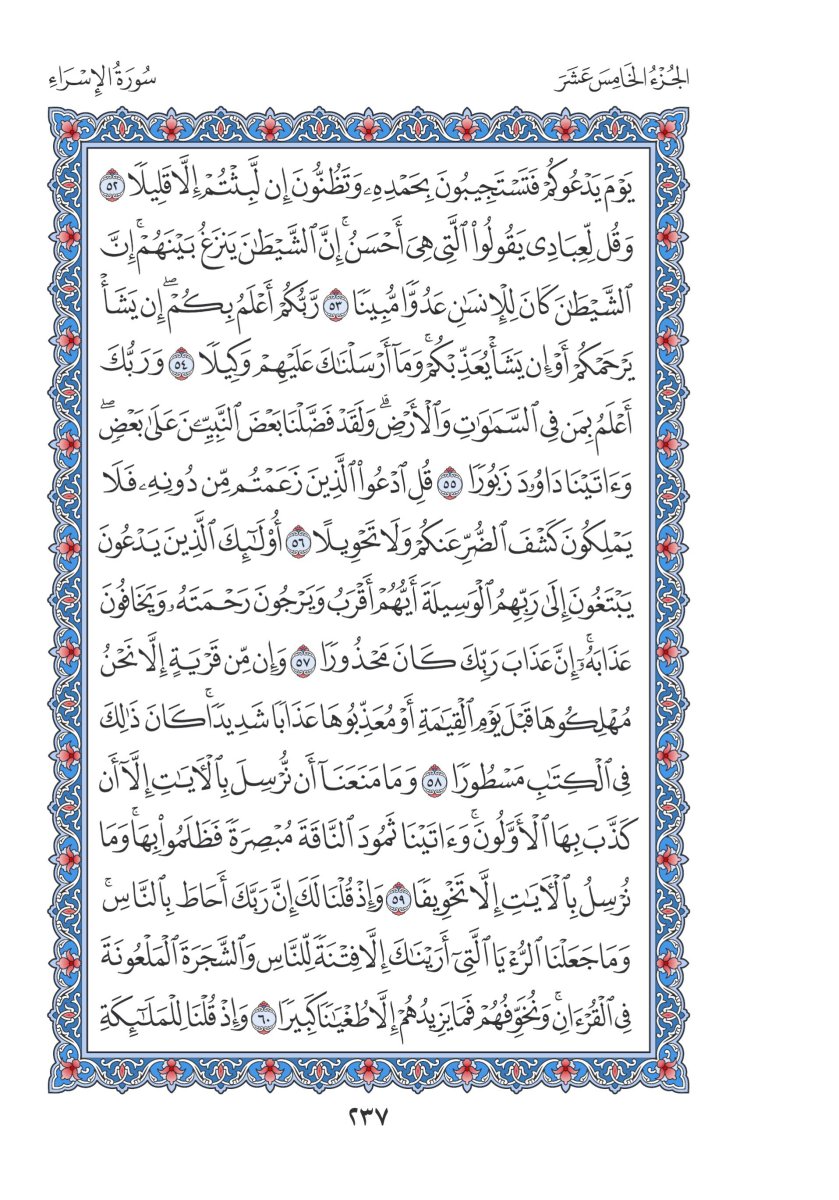 الجُزْءُ الخَامِسَ عَشَرَ
سُورَةُ الإِسْرَاءِ
يَوْمَ يَدْعُوكُمْ فَتَسْتَجِيبُونَ بِحَمْدِهِۦ وَتَظُنُّونَ إِن لَّبِثْتُمْ إِلَّا قَلِيلًا ٥٢
وَقُل لِّعِبَادِى يَقُولُوا۟ ٱلَّتِى هِىَ أَحْسَنُ ۚ إِنَّ ٱلشَّيْطَٰنَ يَنزَغُ بَيْنَهُمْ ۚ إِنَّ
ٱلشَّيْطَٰنَ كَانَ لِلْإِنسَٰنِ عَدُوًّا مُّبِينًا ٥٣ رَّبُّكُمْ أَعْلَمُ بِكُمْ ۖ إِن يَشَأْ
يَرْحَمْكُمْ أَوْ إِن يَشَأْ يُعَذِّبْكُمْ ۚ وَمَآ أَرْسَلْنَٰكَ عَلَيْهِمْ وَكِيلًا ٥٤ وَرَبُّكَ
أَعْلَمُ بِمَن فِى ٱلسَّمَٰوَٰتِ وَٱلْأَرْضِ ۗ وَلَقَدْ فَضَّلْنَا بَعْضَ ٱلنَّبِيِّۦنَ عَلَىٰ بَعْضٍ ۖ
وَءَاتَيْنَا دَاوُۥدَ زَبُورًا ٥٥ قُلِ ٱدْعُوا۟ ٱلَّذِينَ زَعَمْتُم مِّن دُونِهِۦ فَلَا
يَمْلِكُونَ كَشْفَ ٱلضُّرِّ عَنكُمْ وَلَا تَحْوِيلًا ٥٦ أُو۟لَٰٓئِكَ ٱلَّذِينَ يَدْعُونَ
يَبْتَغُونَ إِلَىٰ رَبِّهِمُ ٱلْوَسِيلَةَ أَيُّهُمْ أَقْرَبُ وَيَرْجُونَ رَحْمَتَهُۥ وَيَخَافُونَ
عَذَابَهُۥٓ ۚ إِنَّ عَذَابَ رَبِّكَ كَانَ مَحْذُورًا ٥٧ وَإِن مِّن قَرْيَةٍ إِلَّا نَحْنُ
مُهْلِكُوهَا قَبْلَ يَوْمِ ٱلْقِيَٰمَةِ أَوْ مُعَذِّبُوهَا عَذَابًا شَدِيدًا ۚ كَانَ ذَٰلِكَ
فِى ٱلْكِتَٰبِ مَسْطُورًا ٥٨ وَمَا مَنَعَنَآ أَن نُّرْسِلَ بِٱلْءَايَٰتِ إِلَّآ أَن
كَذَّبَ بِهَا ٱلْأَوَّلُونَ ۚ وَءَاتَيْنَا ثَمُودَ ٱلنَّاقَةَ مُبْصِرَةً فَظَلَمُوا۟ بِهَا ۚ وَمَا
نُرْسِلُ بِٱلْءَايَٰتِ إِلَّا تَخْوِيفًا ٥٩ وَإِذْ قُلْنَا لَكَ إِنَّ رَبَّكَ أَحَاطَ بِٱلنَّاسِ ۚ
وَمَا جَعَلْنَا ٱلرُّءْيَا ٱلَّتِىٓ أَرَيْنَٰكَ إِلَّا فِتْنَةً لِّلنَّاسِ وَٱلشَّجَرَةَ ٱلْمَلْعُونَةَ
فِى ٱلْقُرْءَانِ ۚ وَنُخَوِّفُهُمْ فَمَا يَزِيدُهُمْ إِلَّا طُغْيَٰنًا كَبِيرًا ٦٠ وَإِذْ قُلْنَا لِلْمَلَٰٓئِكَةِ
٢٣٧